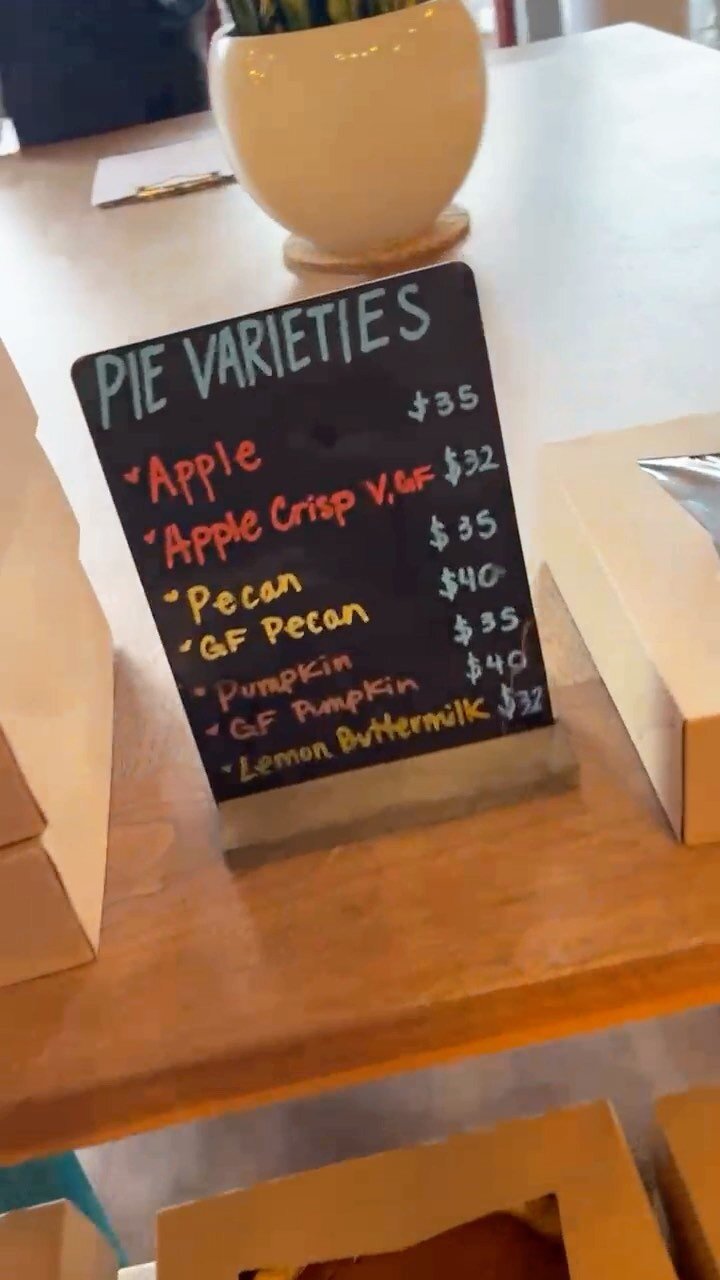 PIE VARIETIES
• Apple $35
• Apple Crisp V,GF $32
• Pecan $35
• GF Pecan $40
• Pumpkin $35
• GF Pumpkin $40
• Lemon Buttermilk $32